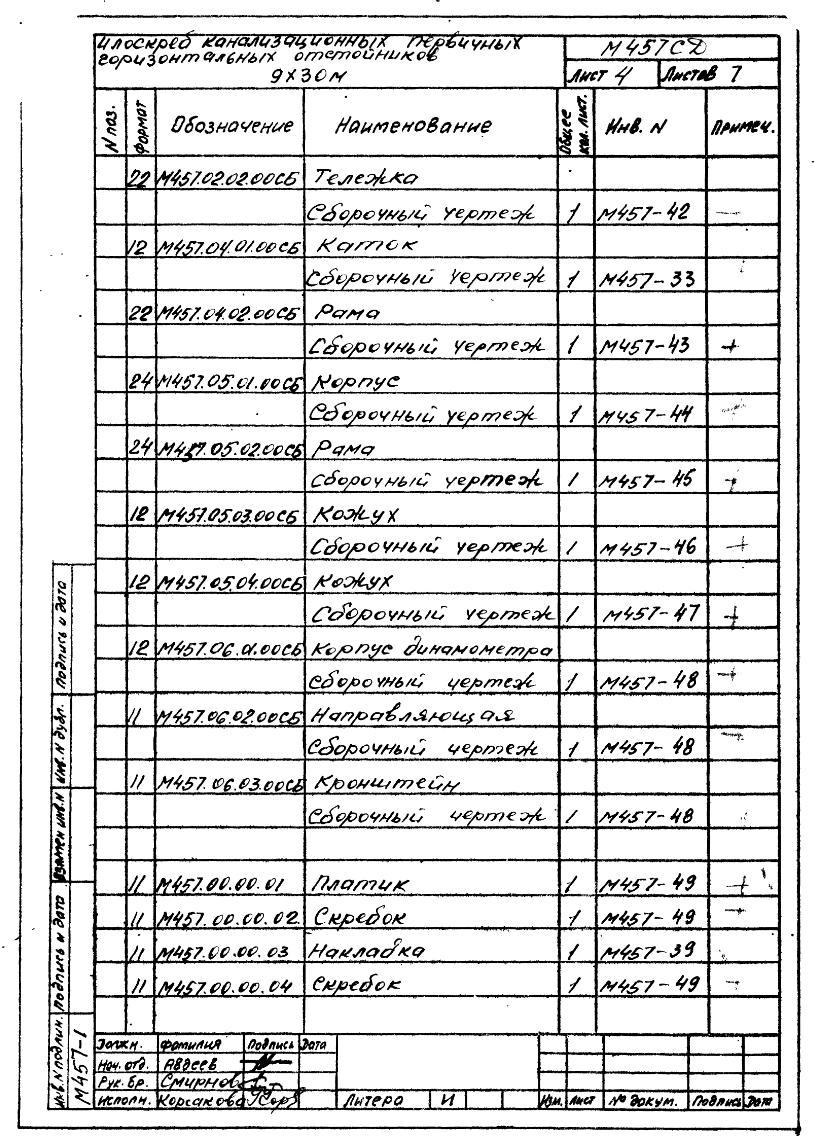 Илоскреб канализационных первичных
горизонтальных отстойников
9х30м
М457СД
Лист 4 Листов 7
N поз. Формат Обозначение Наименование Общее кол. лист. Инв. N Примеч.
22 М457.02.02.00СБ Тележка
Сборочный чертеж 1 М457-42 —
12 М457.04.01.00СБ Каток
Сборочный чертеж 1 М457-33
22 М457.04.02.00СБ Рама
Сборочный чертеж 1 М457-43 +
24 М457.05.01.00СБ Корпус
Сборочный чертеж 1 М457-44
24 М457.05.02.00СБ Рама
Сборочный чертеж 1 М457-45 +
12 М457.05.03.00СБ Кожух
Сборочный чертеж 1 М457-46 +
12 М457.05.04.00СБ Кожух
Сборочный чертеж 1 М457-47 +
12 М457.06.01.00СБ Корпус динамометра
Сборочный чертеж 1 М457-48 +
11 М457.06.02.00СБ Направляющая
Сборочный чертеж 1 М457-48
11 М457.06.03.00СБ Кронштейн
Сборочный чертеж 1 М457-48
11 М457.00.00.01 Платик 1 М457-49 +
11 М457.00.00.02 Скребок 1 М457-49 +
11 М457.00.00.03 Накладка 1 М457-39
11 М457.00.00.04 Скребок 1 М457-49 —
Инв. N подлин. Подпись и дата Взамен инв. N Инв. N дубл. Подпись и дата
М457-1
Должн. Фамилия Подпись Дата
Нач. отд. Авдеев
Рук. бр. Смирнов
Исполн. Корсакова
Литера И
Изм. Лист № докум. Подпись Дата